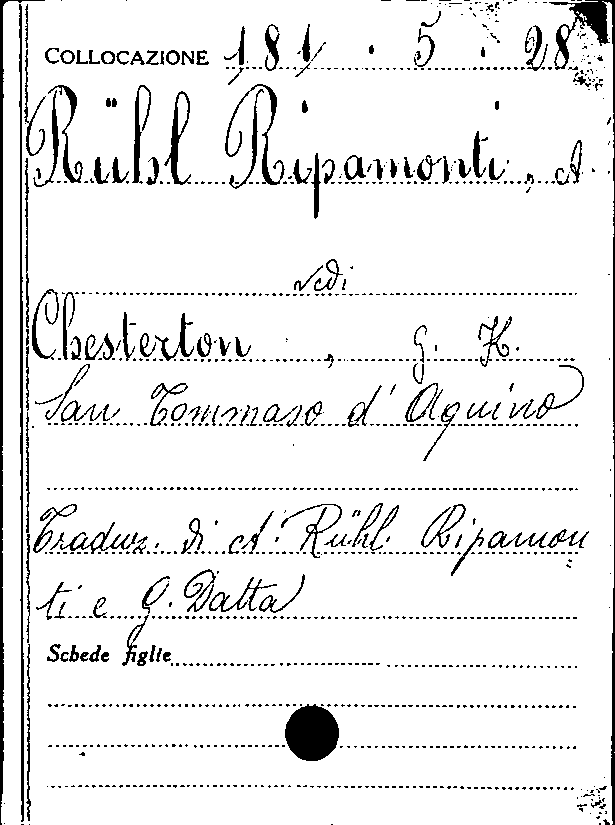 COLLOCAZIONE 181 . 5 . 28
Rühl Ripamonti, A.
vedi
Chesterton, G. K.
San Tommaso d'Aquino
Traduz. di A. Rühl Ripamon
ti e G. Datta
Schede figlie